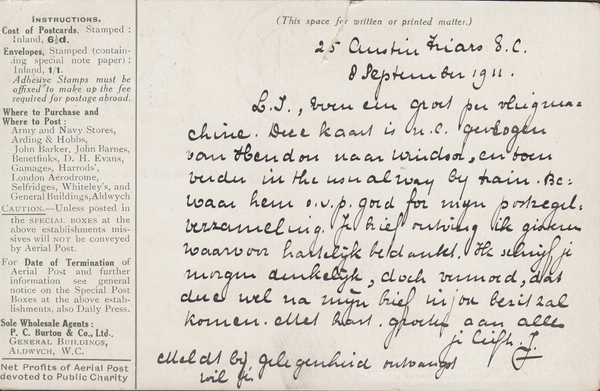 INSTRUCTIONS.
Cost of Postcards, Stamped :
Inland, 6½d.
Envelopes, Stamped (contain-
ing special note paper) :
Inland, 1/1.
Adhesive Stamps must be
affixed to make up the fee
required for postage abroad.
Where to Purchase and
Where to Post :
Army and Navy Stores,
Arding & Hobbs,
John Barker, John Barnes,
Benetfinks, D. H. Evans,
Gamages, Harrods',
London Aerodrome,
Selfridges, Whiteley's, and
General Buildings, Aldwych
CAUTION.—Unless posted in
the SPECIAL BOXES at the
above establishments mis-
sives will NOT be conveyed
by Aerial Post.
For Date of Termination of
Aerial Post and further
information see general
notice on the Special Post
Boxes at the above estab-
lishments, also Daily Press.
Sole Wholesale Agents :
P. C. Burton & Co., Ltd.,
GENERAL BUILDINGS,
ALDWYCH, W.C.
Net Profits of Aerial Post
devoted to Public Charity
(This space for written or printed matter.)
25 Austin Friars E.C.
8 September 1911.
L.S., Even een groet per vliegma-
chine. Deze kaart is n.l. gevlogen
van Hendon naar Windsor, en toen
verder in the usual way by train. Be-
waar hem s.v.p. goed for mijn postzegel-
verzameling. Je brief ontving ik gisteren
waarvoor hartelijk bedankt. Ik schrijf je
morgen denkelijk, doch vermoed, dat
deze wel na mijn brief in jou bezit zal
komen. Met hart. groeten aan alle
je liefh. J.
Meldt bij gelegenheid ontvangst
wil je